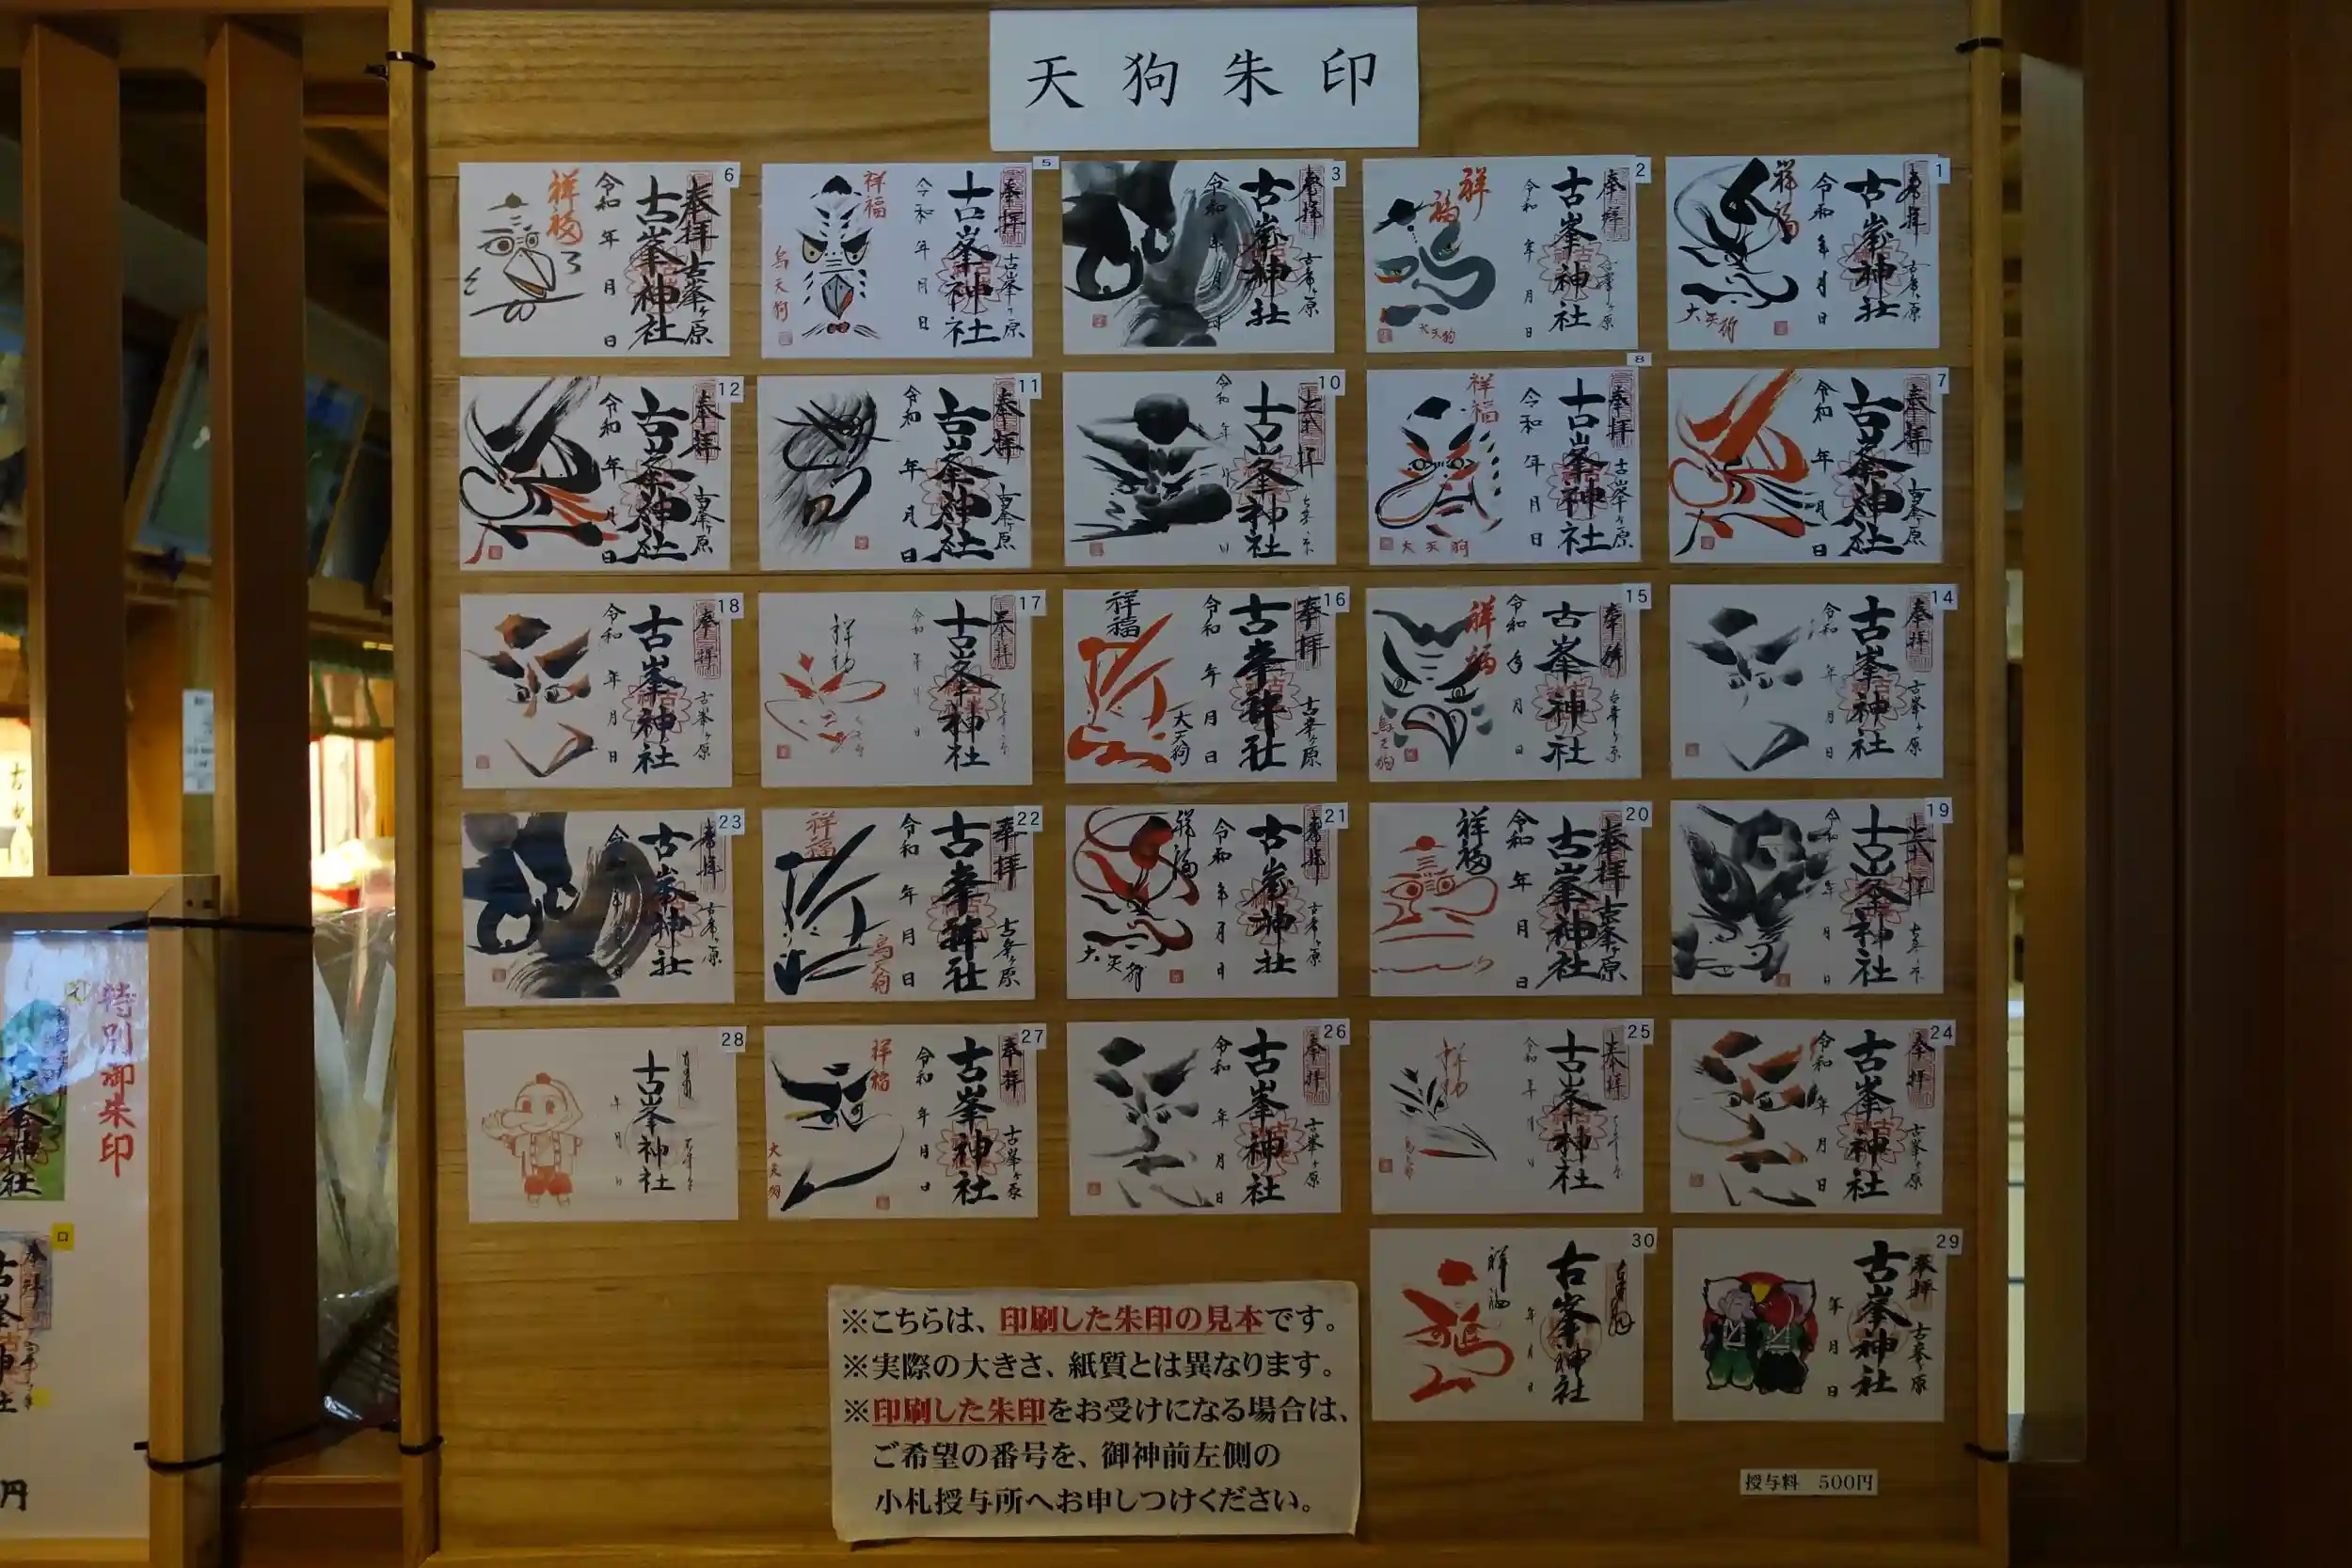 天狗朱印
1
奉拝
古峯ヶ原
古峯神社
令和 年 月 日
祥福
大天狗
2
奉拝
古峯ヶ原
古峯神社
令和 年 月 日
祥福
大天狗
3
奉拝
古峯ヶ原
古峯神社
令和 年 月 日
5
奉拝
古峯ヶ原
古峯神社
令和 年 月 日
祥福
烏天狗
6
奉拝 古峯ヶ原
古峯神社
令和 年 月 日
祥福
7
奉拝
古峯ヶ原
古峯神社
令和 年 月 日
8
奉拝
古峯ヶ原
古峯神社
令和 年 月 日
祥福
大天狗
10
奉拝
古峯神社
令和 年 月 日
11
奉拝
古峯ヶ原
古峯神社
令和 年 月 日
12
奉拝
古峯ヶ原
古峯神社
令和 年 月 日
14
奉拝
古峯ヶ原
古峯神社
令和 年 月 日
15
奉拝
古峯ヶ原
古峯神社
令和 年 月 日
祥福
烏天狗
16
奉拝
古峯ヶ原
古峯神社
令和 年 月 日
祥福
大天狗
17
奉拝
古峯神社
令和 年 月 日
18
奉拝
古峯ヶ原
古峯神社
令和 年 月 日
19
奉拝
古峯神社
令和 年 月 日
20
奉拝 古峯ヶ原
古峯神社
令和 年 月 日
祥福
21
奉拝
古峯ヶ原
古峯神社
令和 年 月 日
祥福
大天狗
22
奉拝
古峯ヶ原
古峯神社
令和 年 月 日
祥福
烏天狗
23
奉拝
古峯ヶ原
古峯神社
令和 年 月 日
24
奉拝
古峯ヶ原
古峯神社
令和 年 月 日
25
奉拝
古峯神社
令和 年 月 日
26
奉拝
古峯ヶ原
古峯神社
令和 年 月 日
27
奉拝
古峯ヶ原
古峯神社
令和 年 月 日
祥福
大天狗
28
古峯神社
年 月 日
29
奉拝
古峯ヶ原
古峯神社
年 月 日
30
古峯神社
年 月 日
祥福
※こちらは、印刷した朱印の見本です。
※実際の大きさ、紙質とは異なります。
※印刷した朱印をお受けになる場合は、
ご希望の番号を、御神前左側の
小札授与所へお申しつけください。
授与料 500円
特別御朱印
ロ
円